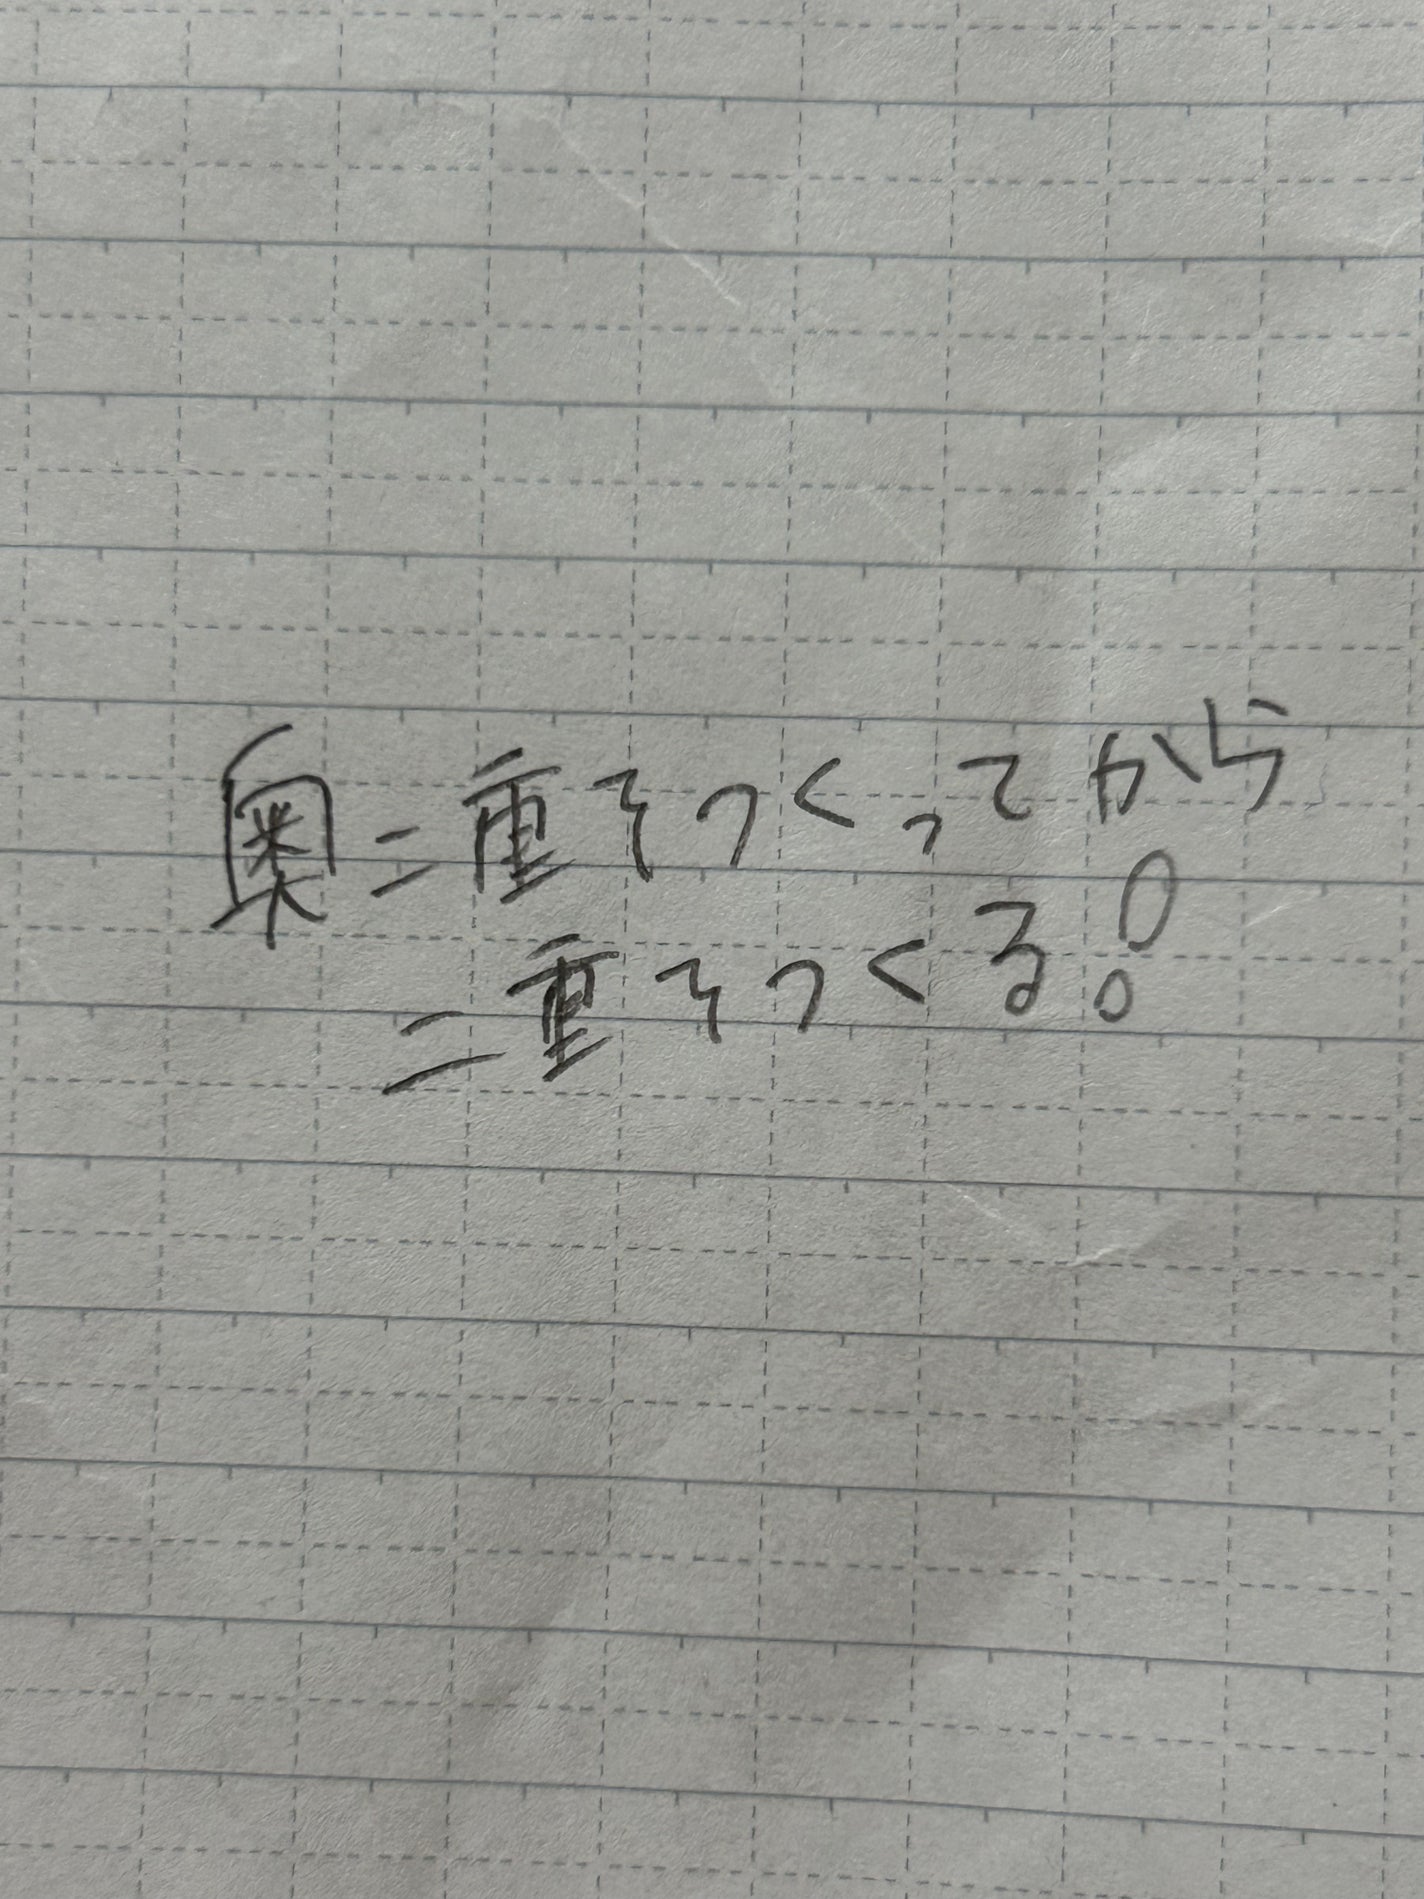 奥二重そつくってから
二重そつくる!